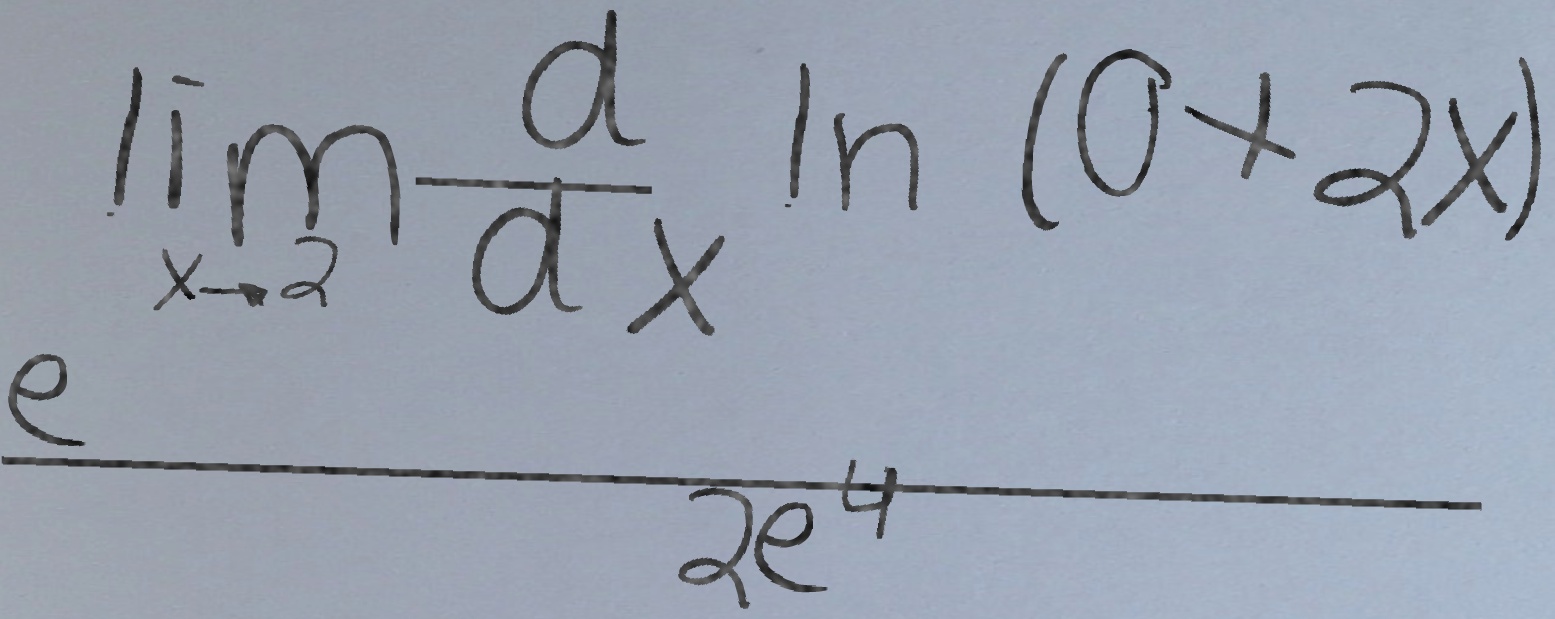 \frac{e^{\lim_{x \to 2} \frac{d}{dx} \ln (0 + 2x)}}{2e^4}